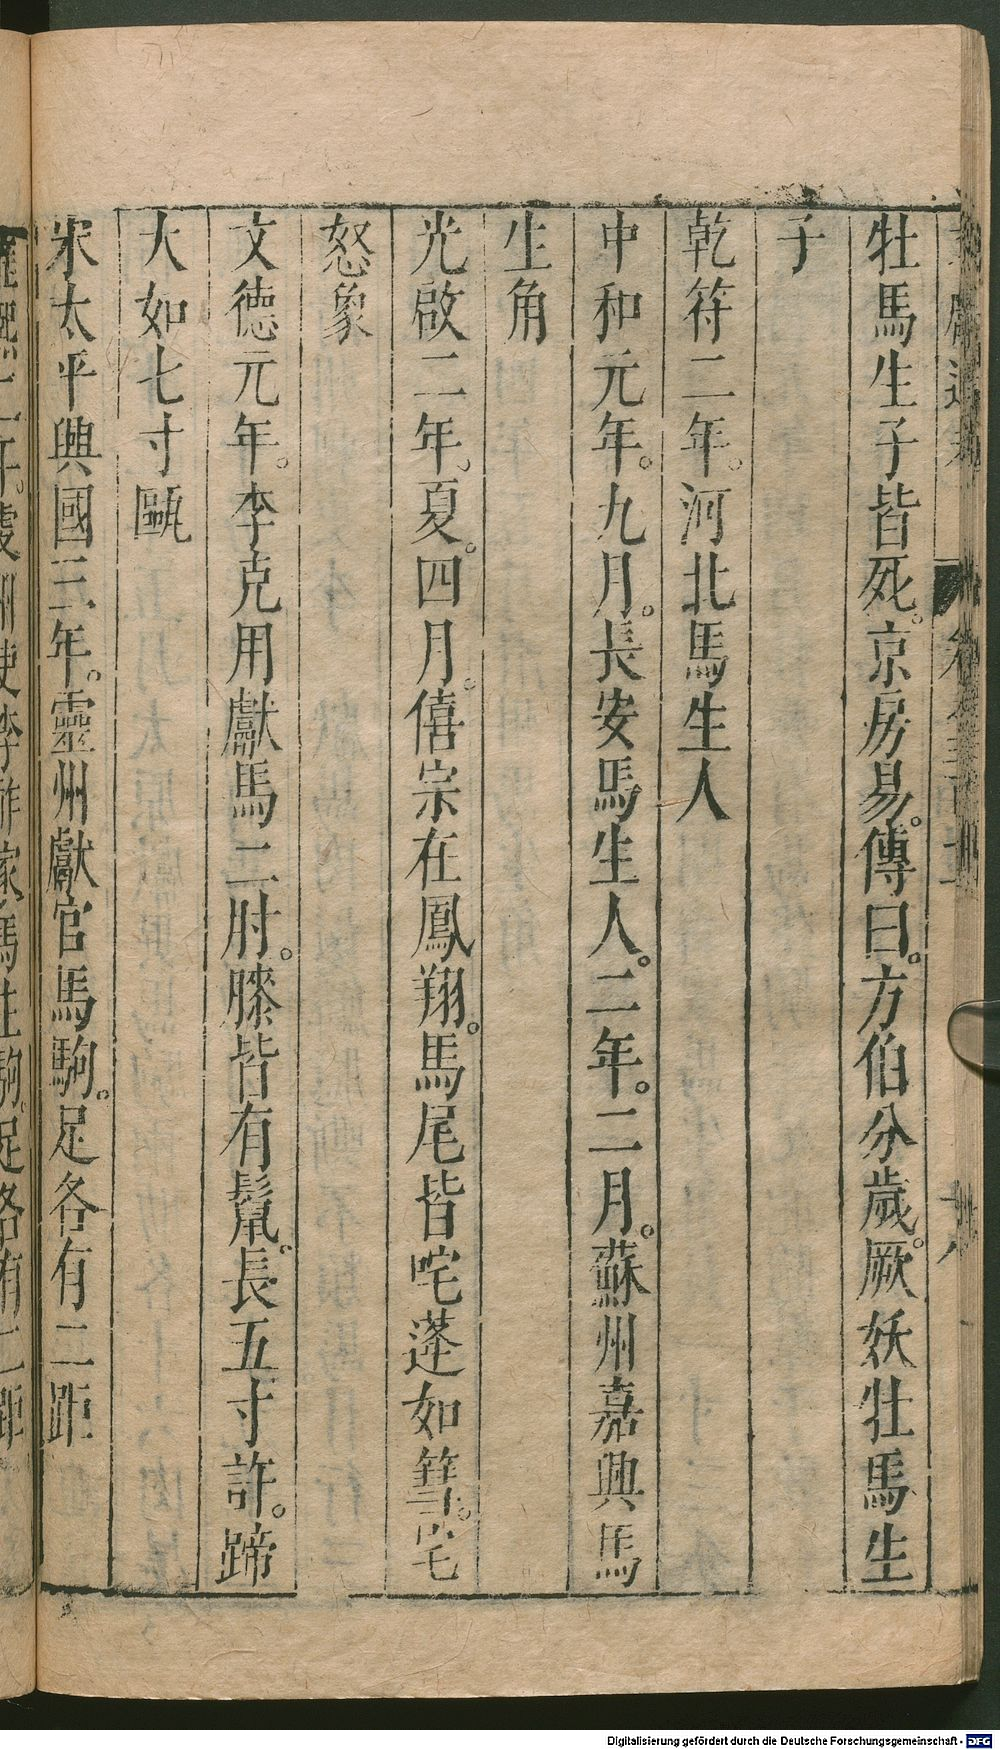 牡馬生子皆死。京房易。傳曰。方伯分歲。厥妖牡馬生
子
乾符二年。河北馬生人
中和元年。九月。長安馬生人。二年。二月。蘇州嘉興馬
生角
光啟二年。夏。四月。僖宗在鳳翔。馬尾皆咤蓬如篲。咤
怒象
文德元年。李克用獻馬二肘。膝皆有鬣。長五寸許。蹄
大如七寸甌
宋太平興國三年。靈州獻官馬駒。足各有二距
雍熙二年。虔州使李祚家馬生駒。足各有二距
Digitalisierung gefördert durch die Deutsche Forschungsgemeinschaft - DFG